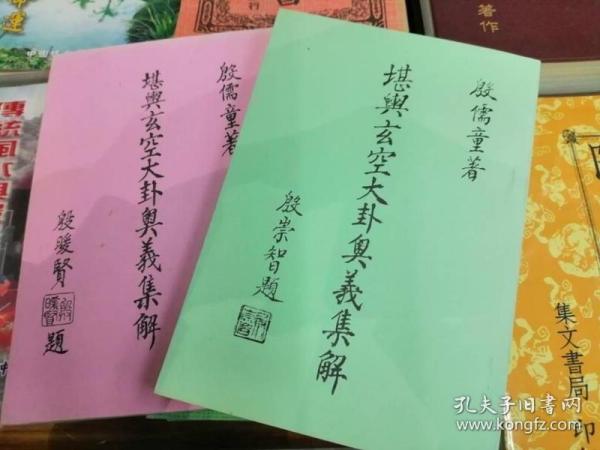 殷儒童著
堪輿玄空大卦奧義集解
殷崇智題
殷儒童著
堪輿玄空大卦奧義集解
殷暖賢
題
著作
集文書局 印
孔夫子旧书网
www.kongfz.com